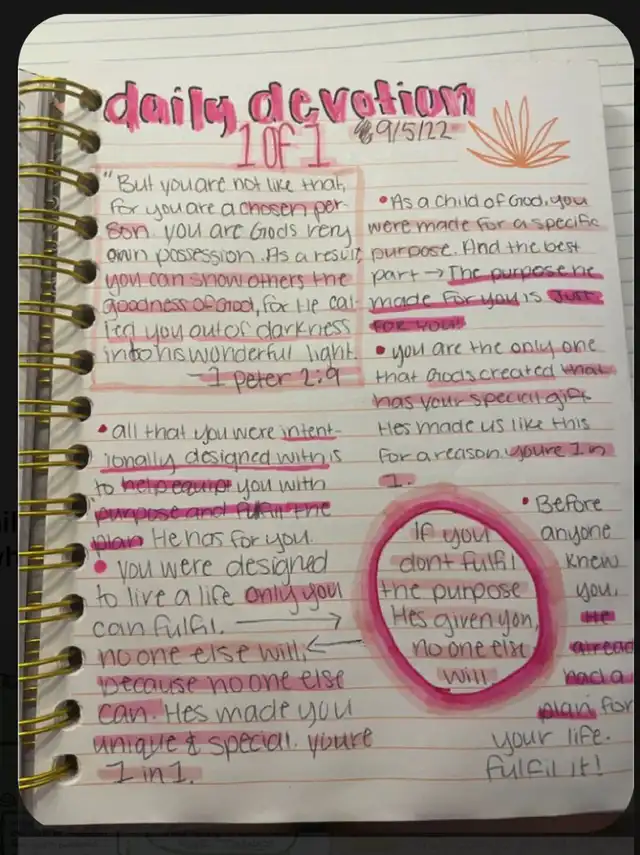 daily devotion
1 OF 1
9/5/22
"But you are not like that,
for you are a chosen per-
son. you are Gods very
own possession. As a result,
you can show others the
goodness of God, for He cal-
led you out of darkness
into his wonderful light.
-1 peter 2:9
• all that you were intent-
ionally designed with is
to help equipt you with
purpose and fulfill the
plan He has for you.
• you were designed
to live a life only you
can fulfil. →
no one else will, ←
because no one else
can. Hes made you
unique & special. youre
1 in 1.
• As a child of God, you
were made for a specific
purpose. And the best
part → The purpose he
made for you is Just
for you!
• you are the only one
that Gods created that
has your special gift
Hes made us like this
for a reason. youre 1 in
1.
If you
dont fulfil
the purpose
Hes given you,
no one else
will.
• Before
anyone
knew
you,
He
alread
had a
plan for
your life.
fulfil it!